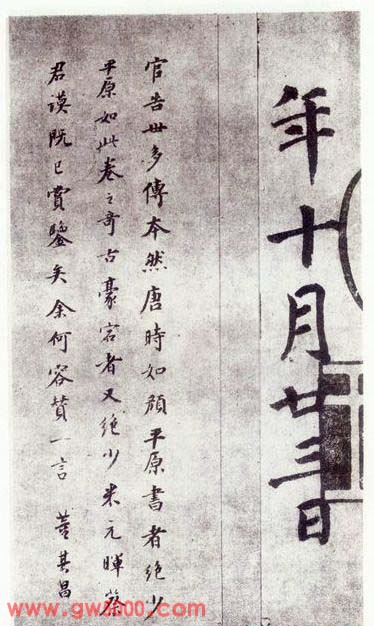 年十月廿三日
官告世多傳本然唐時如顏平原書者絕少
平原如此卷之奇古豪宕者又絕少米元暉蔡
君謨既已賞鑒矣余何容贊一言 董其昌
www.gw800.com